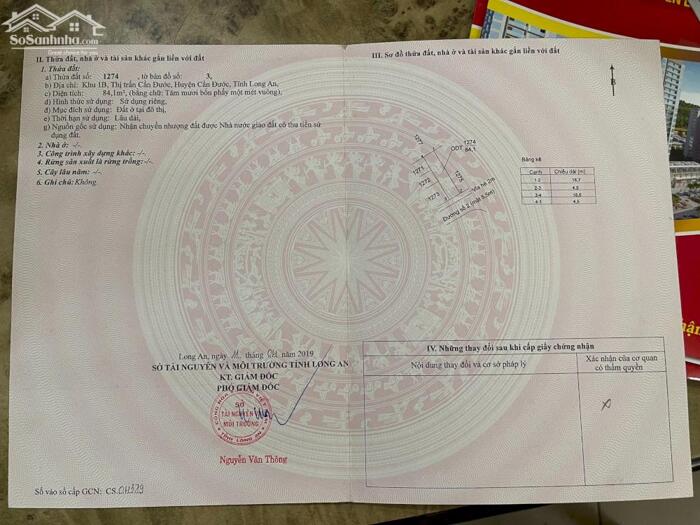 SoSanhnha.com
Great choice for you
II. Thửa đất, nhà ở và tài sản khác gắn liền với đất
1. Thửa đất:
a) Thửa đất số: 1274 , tờ bản đồ số: 3,
b) Địa chỉ: Khu 1B, Thị trấn Cần Đước, Huyện Cần Đước, Tỉnh Long An,
c) Diện tích: 84,1m², (bằng chữ: Tám mươi bốn phẩy một mét vuông),
d) Hình thức sử dụng: Sử dụng riêng,
đ) Mục đích sử dụng: Đất ở tại đô thị,
e) Thời hạn sử dụng: Lâu dài,
g) Nguồn gốc sử dụng: Nhận chuyển nhượng đất được Nhà nước giao đất có thu tiền sử
dụng đất.
2. Nhà ở: -/-
3. Công trình xây dựng khác: -/-
4. Rừng sản xuất là rừng trồng: -/-
5. Cây lâu năm: -/-
6. Ghi chú: Không.
Long An, ngày tháng năm 2019
SỞ TÀI NGUYÊN VÀ MÔI TRƯỜNG TỈNH LONG AN
KT. GIÁM ĐỐC
PHÓ GIÁM ĐỐC
SỞ
TÀI NGUYÊN
MÔI TRƯỜNG
TỈNH LONG AN
Nguyễn Văn Thông
Số vào sổ cấp GCN: CS
III. Sơ đồ thửa đất, nhà ở và tài sản khác gắn liền với đất
B
1277
1274
ODT 84,1
1271
1272
1273
1275
Vỉa hè 2m
Đường số 2 (mặt 5,5m)
Bảng kê
Cạnh Chiều dài (m)
1-2
2-3 4,5
3-4
4-1 4,5
IV. Những thay đổi sau khi cấp giấy chứng nhận
Nội dung thay đổi và cơ sở pháp lý
Xác nhận của cơ quan
có thẩm quyền